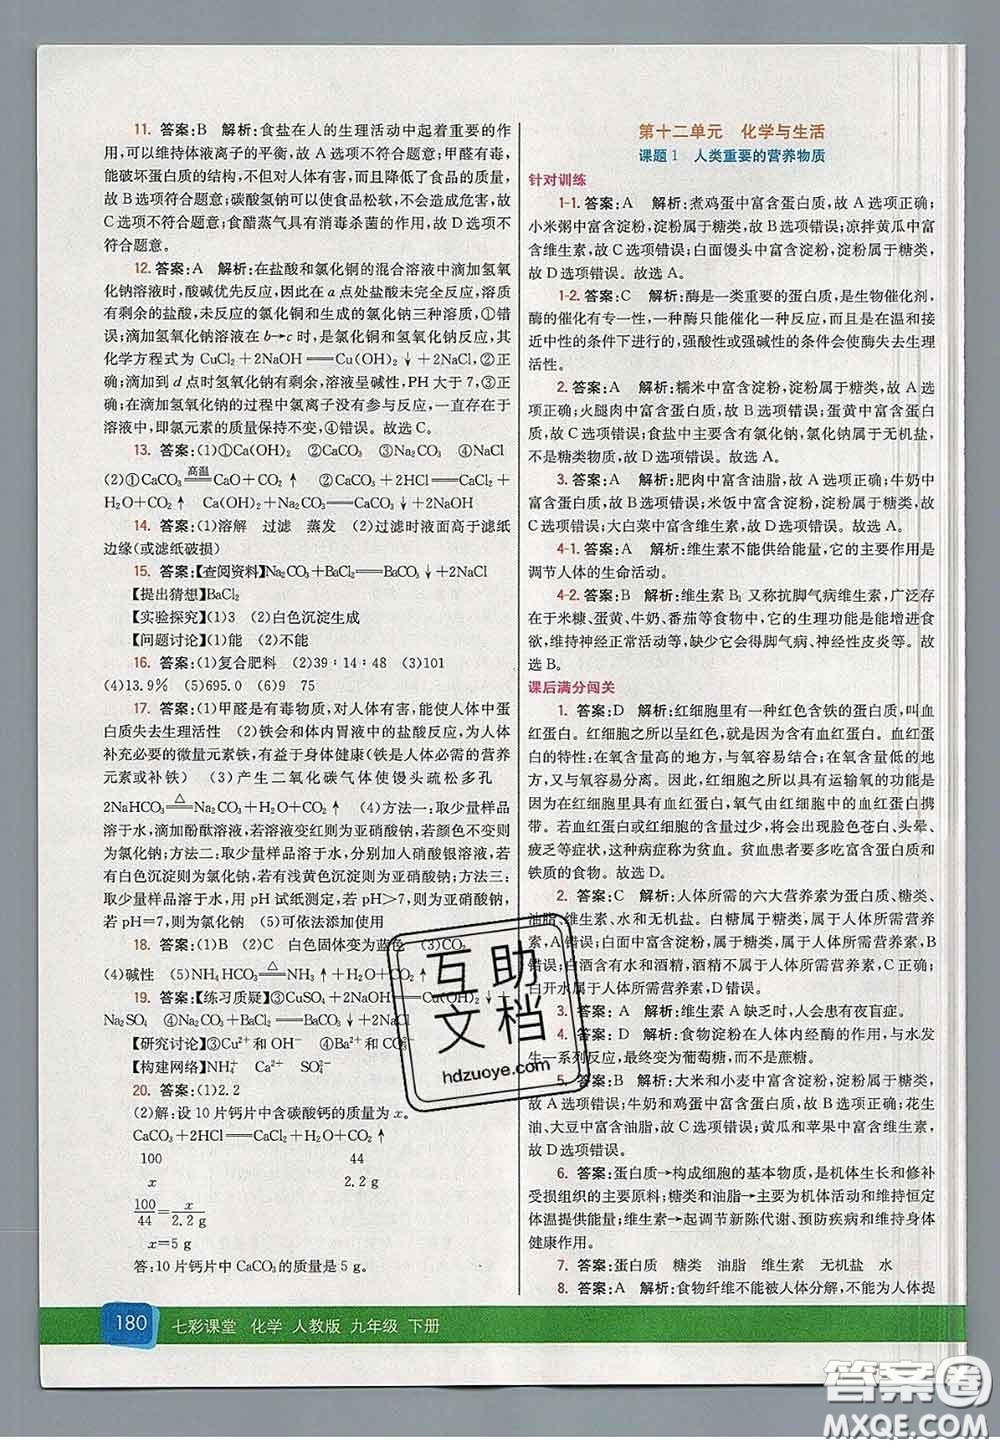 11. 答案:B　解析:食盐在人的生理活动中起着重要的作
用,可以维持体液离子的平衡,故 A 选项不符合题意;甲醛有毒,能
破坏蛋白质的结构,不但对人体有害,而且不能提高食品的质量,
故 B 选项符合题意;碳酸氢钠可以使食品松软,不会造成危害,故
C 选项不符合题意;食醋蒸气具有消毒杀菌的作用,故 D 选项不
符合题意。
12. 答案:A　解析:在盐酸和氯化铜的混合溶液中滴加氢氧
化钠溶液时,酸碱优先反应,因此在 a 点处盐酸未完全反应,溶质
有剩余的盐酸,未反应的氯化铜和生成的氯化钠三种溶质,①错
误;滴加氢氧化钠溶液在 b→c 时,是氯化铜和氢氧化钠反应,其
化学方程式为 CuCl₂+2NaOH══Cu(OH)₂↓+2NaCl,②正
确;滴加到 d 点时氢氧化钠有剩余,溶液呈碱性,PH 大于 7,③正
确;在滴加氢氧化钠的过程中氯离子没有参与反应,一直存在于
溶液中,即氯元素的质量保持不变,④错误。故选C。
13. 答案:(1)①Ca(OH)₂　②CaCO₃　③Na₂CO₃　④NaCl
(2)①CaCO₃ 高温══ CaO+CO₂↑　②CaCO₃+2HCl══CaCl₂+
H₂O+CO₂↑　Ca(OH)₂+Na₂CO₃══CaCO₃↓+2NaOH
14. 答案:(1)溶解　过滤　蒸发　(2)过滤时液面高于滤纸
边缘(或滤纸破损)
15. 答案:【查阅资料】Na₂CO₃+BaCl₂══BaCO₃↓+2NaCl
【提出猜想】BaCl₂
【实验探究】(1)3　(2)白色沉淀生成
【问题讨论】(1)能　(2)不能
16. 答案:(1)复合肥料　(2)39∶14∶48　(3)101
(4)13.9%　(5)695.0　(6)9　75
17. 答案:(1)甲醛是有毒物质,对人体有害,能使人体中蛋
白质失去生理活性　(2)铁会和体内胃液中的盐酸反应,为人体
补充必要的微量元素铁,有益于身体健康(铁是人体必需的营养
元素或补铁)　(3)产生二氧化碳气体使馒头疏松多孔
2NaHCO₃ △══ Na₂CO₃+H₂O+CO₂↑　(4)方法一:取少量样品
溶于水,滴加酚酞溶液,若溶液变红则为亚硝酸钠,若颜色不变则
为氯化钠;方法二:取少量样品溶于水,分别加入硝酸银溶液,若
有白色沉淀则为氯化钠,若有浅黄色沉淀则为亚硝酸钠;方法三:
取少量样品溶于水,用 pH 试纸测定,若 pH>7,则为亚硝酸钠,
若 pH=7,则为氯化钠　(5)可依法添加使用
18. 答案:(1)B　(2)C　白色固体变为蓝色　(3)CO₂
(4)碱性　(5)NH₄HCO₃ △══ NH₃↑+H₂O+CO₂↑
19. 答案:【练习质疑】③CuSO₄+2NaOH══Cu(OH)₂↓+
Na₂SO₄　④Na₂CO₃+BaCl₂══BaCO₃↓+2NaCl
【研究讨论】③Cu²⁺和 OH⁻　④Ba²⁺和 CO₃²⁻
【构建网络】NH₄⁺　Ca²⁺　SO₄²⁻
20. 答案:(1)2.2
(2)解:设 10 片钙片中含碳酸钙的质量为 x。
CaCO₃+2HCl══CaCl₂+H₂O+CO₂↑
100　44
x　2.2 g
100/44=x/2.2 g
x=5 g
答:10 片钙片中 CaCO₃ 的质量是 5 g。
第十二单元　化学与生活
课题 1　人类重要的营养物质
针对训练
1-1. 答案:A　解析:煮鸡蛋中富含蛋白质,故 A 选项正确;
小米粥中富含淀粉,淀粉属于糖类,故 B 选项错误;凉拌黄瓜中富
含维生素,故 C 选项错误;白面馒头中富含淀粉,淀粉属于糖类,
故 D 选项错误。故选 A。
1-2. 答案:C　解析:酶是一类重要的蛋白质,是生物催化剂,
酶的催化有专一性,一种酶只能催化一种反应,而且是在温和接
近中性的条件下进行的,强酸性或强碱性的条件会使酶失去生理
活性。
2. 答案:A　解析:糯米中富含淀粉,淀粉属于糖类,故 A 选
项正确;火腿肉中富含蛋白质,故 B 选项错误;蛋黄中富含蛋白
质,故 C 选项错误;食盐中主要含有氯化钠,氯化钠属于无机盐,
不是糖类物质,故 D 选项错误。故选 A。
3. 答案:A　解析:肥肉中富含油脂,故 A 选项正确;牛奶中
富含蛋白质,故 B 选项错误;米饭中富含淀粉,淀粉属于糖类,故
C 选项错误;大白菜中富含维生素,故 D 选项错误。故选 A。
4-1. 答案:A　解析:维生素不能供给能量,它的主要作用是
调节人体的生命活动。
4-2. 答案:B　解析:维生素 B₁ 又称抗脚气病维生素,广泛存
在于米糠、蛋黄、牛奶、番茄等食物中,它的生理功能是能增进食
欲,维持神经正常活动等,缺少它会得脚气病、神经性皮炎等。故
选 B。
课后满分闯关
1. 答案:D　解析:红细胞里有一种红色含铁的蛋白质,叫血
红蛋白。红细胞之所以呈红色,就是因为含有血红蛋白。血红蛋
白的特性:在氧含量高的地方,与氧容易结合;在氧含量低的地
方,又与氧容易分离。因此,红细胞之所以具有运输氧的功能是
因为在红细胞中含有血红蛋白,氧气由红细胞中的血红蛋白携
带。若血红蛋白或红细胞的含量过少,将会出现脸色苍白、头晕、
疲乏等症状,这种病症称为贫血。贫血患者要多吃富含蛋白质和
铁质的食物。故选 D。
2. 答案:C　解析:人体所需的六大营养素为蛋白质、糖类、
油脂、维生素、水和无机盐。白糖属于糖类,属于人体所需营养
素,A 错误;白面中富含淀粉,属于糖类,属于人体所需营养素,B
错误;白酒含有水和酒精,酒精不属于人体所需营养素,C 正确;
白开水属于人体所需营养素,D 错误。
3. 答案:A　解析:维生素 A 缺乏时,人会患有夜盲症。
4. 答案:D　解析:食物淀粉在人体内经酶的作用,与水发
生一系列反应,最终变为葡萄糖,而不是蔗糖。
5. 答案:B　解析:大米和小麦中富含淀粉,淀粉属于糖类,
故 A 选项错误;牛奶和鸡蛋中富含蛋白质,故 B 选项正确;花生
油、大豆中富含油脂,故 C 选项错误;黄瓜和苹果中富含维生素,
故 D 选项错误。
6. 答案:蛋白质→构成细胞的基本物质,是机体生长和修补
受损组织的主要原料;糖类和油脂→主要为机体活动和维持恒定
体温提供能量;维生素→起调节新陈代谢、预防疾病和维持身体
健康作用。
7. 答案:蛋白质　糖类　油脂　维生素　无机盐　水
8. 答案:A　解析:食物纤维不能被人体分解,不能为人体提
互助
文档
hdzuoye.com
180　七彩课堂　化学　人教版　九年级　下册
答案圈
MXQE.COM